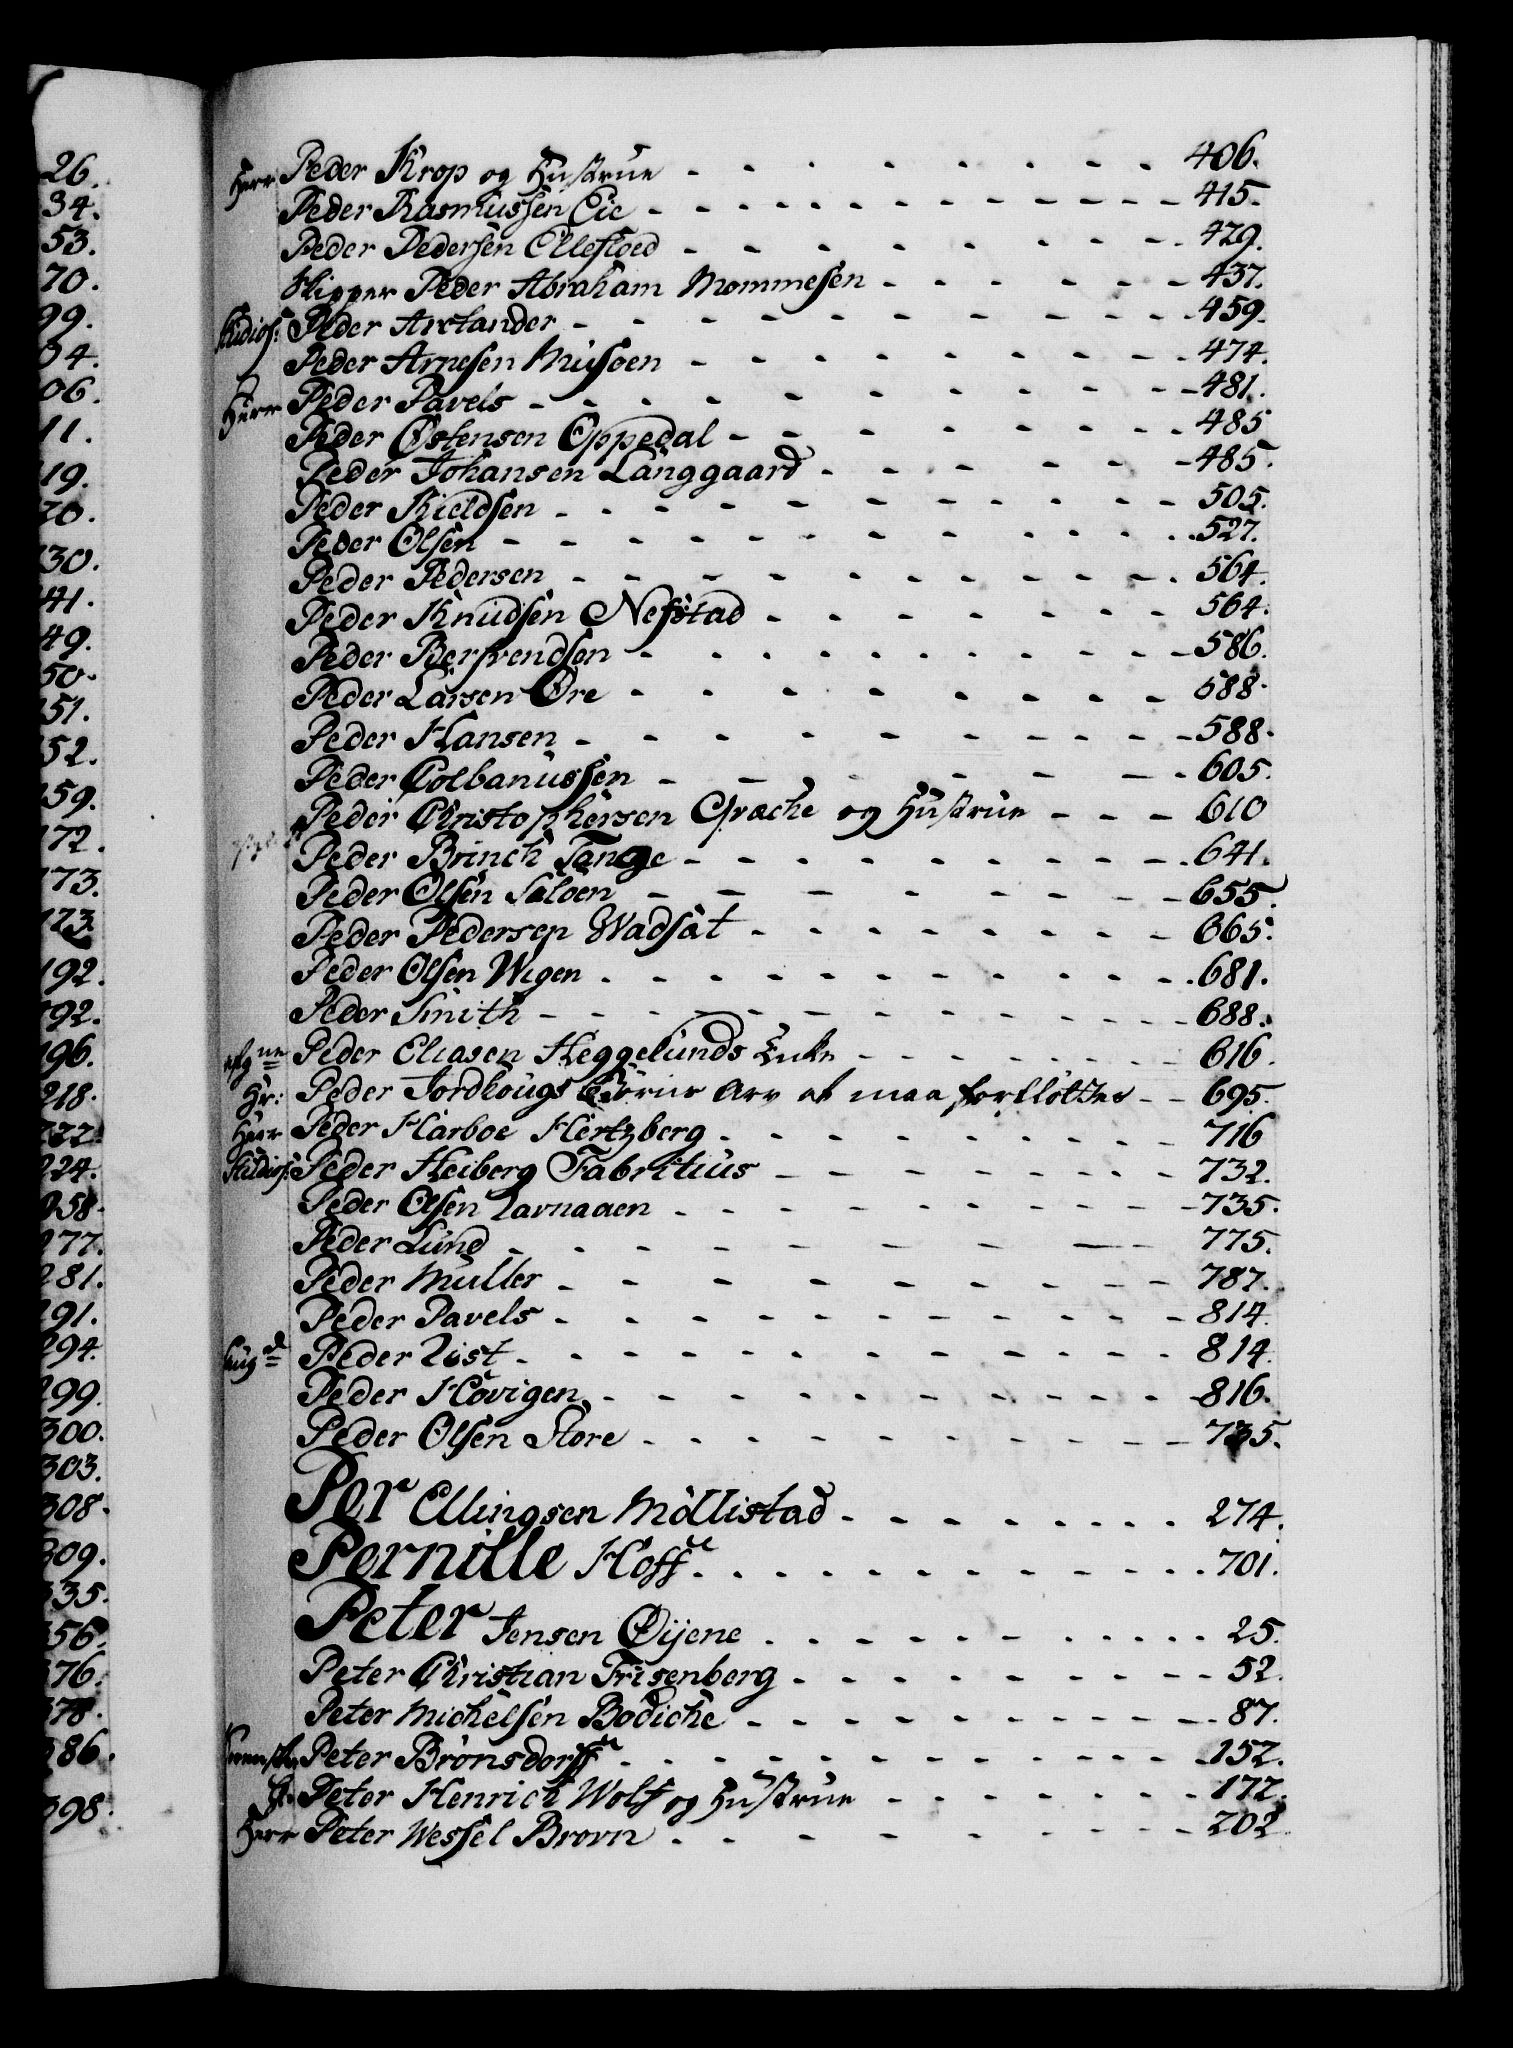 26.
34.
53.
70.
99.
04.
06.
11.
19.
20.
30.
41.
49.
50.
51.
52.
59.
172.
173.
173.
192.
192.
196.
218.
222.
224.
258.
277.
281.
291.
294.
299.
300.
303.
308.
309.
335.
356.
376.
378.
386.
398.
Herr Peder Krop og Hustrue - - - 406.
Peder Rasmussen Eie - - - 415.
Peder Pedersen Ellefloed - - - 429.
Skipper Peder Abraham Mommesen - - - 437.
Studios: Peder Arctander - - - 459.
Peder Arnesen Musoen - - - 474.
Herr Peder Pavels - - - 481.
Peder Østensen Oppedal - - - 485
Peder Johansen Langgaard - - - 485.
Peder Kieldsen - - - 505.
Peder Olsen - - - 527.
Peder Pedersen - - - 564.
Peder Knudsen Nefstad - - - 564.
Peder Bersvendsen - - - 586.
Peder Larsen Øre - - - 588.
Peder Hansen - - - 588.
Peder Colbanussen - - - 605.
Peder Christophersen Græche og Hustrue - - - 610
Peder Brinch Tange - - - 641.
Peder Olsen Saloen - - - 655.
Peder Pedersen Wadsæt - - - 665.
Peder Olsen Wigen - - - 681.
Peder Smith - - - 688.
Peder Eliasen Heggelunds Enke - - - 616.
Hr: Peder Jordhougs Børns Arv at maa forfløttes - - 695.
Herr Peder Harboe Hertzberg - - - 716
Studios: Peder Heiberg Fabritius - - - 732.
Peder Olsen Lavnaaen - - - 735.
Peder Lund - - - 775.
Peder Müller - - - 787.
Peder Pavels - - - 814.
Laugd Peder List - - - 814.
Peder Hovigen - - - 816.
Peder Olsen Store - - - 735.
Per Ellingsen Möllistad - - - 274.
Pernille Hoff - - - 701.
Peter Jensen Øijene - - - 25.
Peter Christian Frisenberg - - - 52.
Peter Michelsen Bodiche - - - 87.
Peter Brönsdorff - - - 152.
Hr. Peter Henrich Wolf og Hustrue - - - 172.
Herr Peter Wessel Brovn - - - 202.